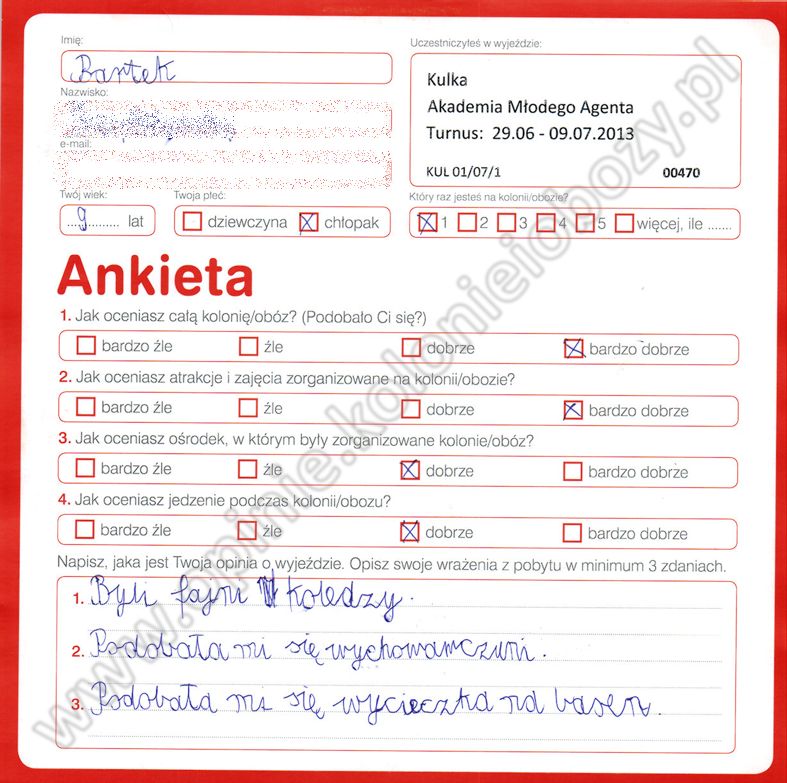 Imię:
Bartek
Nazwisko:
e-mail:
Twój wiek:
...9......... lat
Twoja płeć:
dziewczyna chłopak
Uczestniczyłeś w wyjeździe:
Kulka
Akademia Młodego Agenta
Turnus: 29.06 - 09.07.2013
KUL 01/07/1 00470
Który raz jesteś na kolonii/obozie?
1 2 3 4 5 więcej, ile .......
Ankieta
1. Jak oceniasz całą kolonię/obóz? (Podobało Ci się?)
bardzo źle źle dobrze bardzo dobrze
2. Jak oceniasz atrakcje i zajęcia zorganizowane na kolonii/obozie?
bardzo źle źle dobrze bardzo dobrze
3. Jak oceniasz ośrodek, w którym były zorganizowane kolonie/obóz?
bardzo źle źle dobrze bardzo dobrze
4. Jak oceniasz jedzenie podczas kolonii/obozu?
bardzo źle źle dobrze bardzo dobrze
Napisz, jaka jest Twoja opinia o wyjeździe. Opisz swoje wrażenia z pobytu w minimum 3 zdaniach.
1. Byli fajni koledzy.
2. Podobała mi się wychowamczuni.
3. Podobała mi się wycieczka na basen.
www.opinie.kolonieiobozy.pl